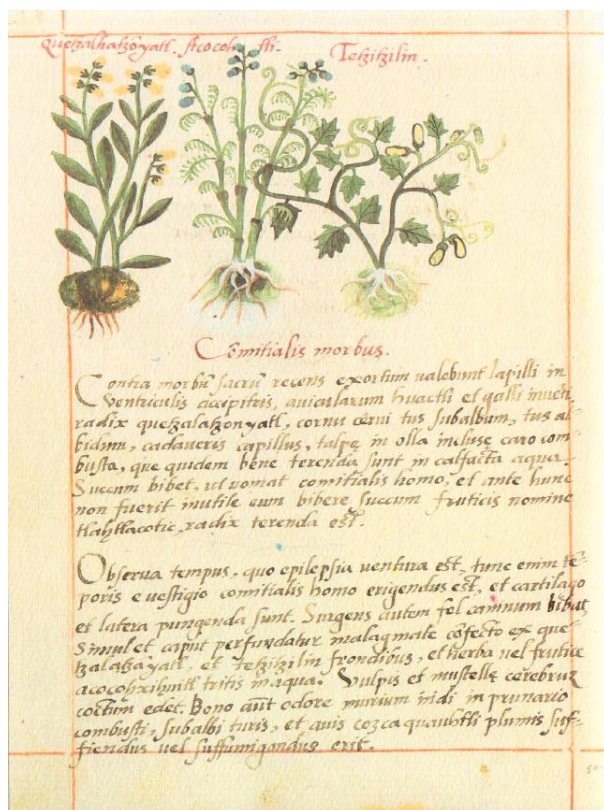 Quetzalhatzōyatl. Acocohtli. Tetzitzilin.
Comitialis morbus.
Contra morbū sacrū recens exortum ualebunt lapilli in
Ventriculis accipitris, auicularum huactli et galli inuēti,
radix quetzalatzonyatl, cornu cerui tus subalbum, tus al-
bidum, cadaueris capillus, talpę in olla incluse caro com-
busta, que quidem bene terenda sunt in calfacta aqua.
Succum bibet, ut uomat comitialis homo, et ante hunc
non fuerit inutile eum bibere succum fruticis nomine
radix terenda est.
Obserua tempus, quo epilepsia uentura est, tunc enim tē-
poris e uestigio comitialis homo erigendus est, et cartilago
et latera pungenda sunt. Surgens autem fel caninum bibat,
Simul et caput perfundatur malagmate cōfecto ex que-
tzalatzoyatl, et tetzitzilin frondibus, et herba uel frutice
acocohxihuitl tritis in aqua. Vulpis et mustelle cerebruz
coctum edet. Bono aūt odore murium nidi in prunario
combusti, subalbi turis, et auis cozcaquauhtli plumis suf-
fiendus uel suffumigandus erit.